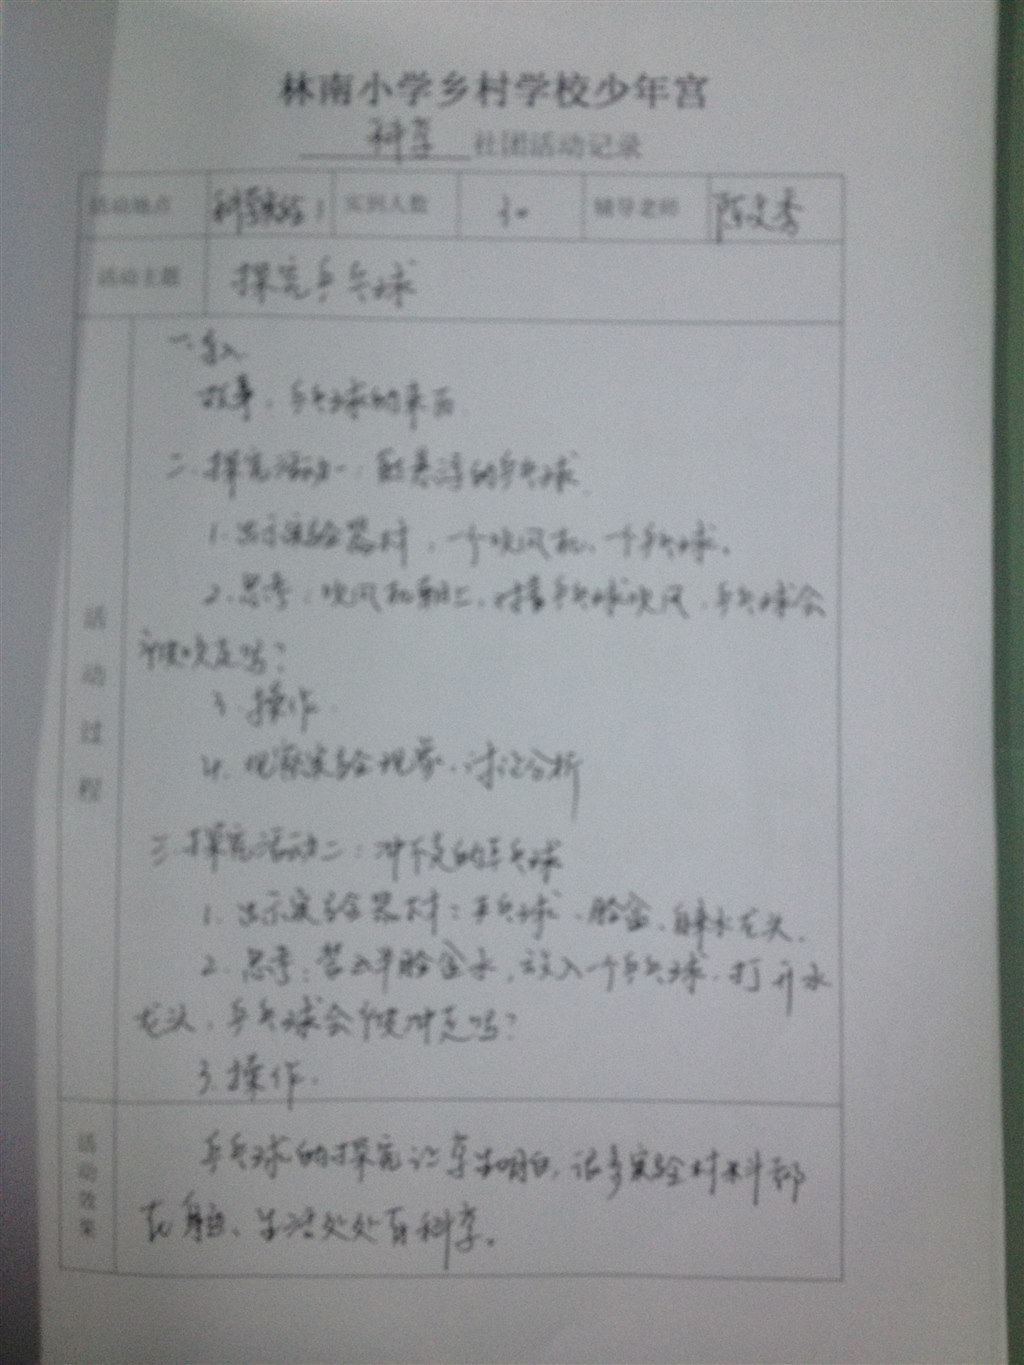 林南小学乡村学校少年宫
科学 社团活动记录
活动地点 科学实验 实到人数 30 辅导老师 陈文秀
活动主题 探究乒乓球
活动过程
一、导入
故事：乒乓球的来历
二、探究活动一：悬浮的乒乓球
1.出示实验器材：一个吹风机、一个乒乓球。
2.思考：吹风机朝上，对着乒乓球吹风，乒乓球会
被吹走吗？
3.操作
4.观察实验现象，讨论分析
三、探究活动二：冲不走的乒乓球
1.出示实验器材：乒乓球、脸盆、自来水龙头。
2.思考：营五半脸盆水，放入一个乒乓球，打开水
龙头，乒乓球会被冲走吗？
3.操作。
活动效果
乒乓球的探究让学生明白，很多实验材料都
在身边、生活处处有科学。